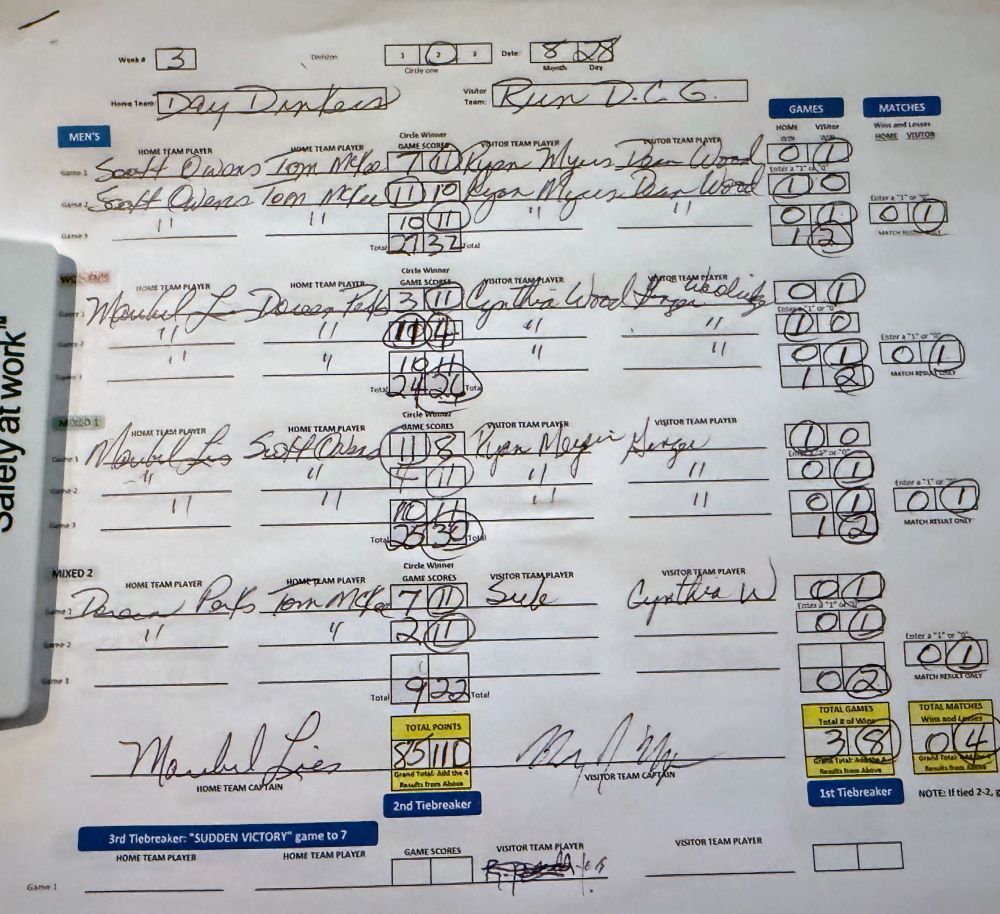 Safety at work™
Week # 3 Division 1 2 3 Date: 8 28
Circle one Month Day
Home Team: Day Dinkers Visitor Team: Run D.C.G.
GAMES MATCHES
MEN'S
Circle Winner HOME WIN Visitor WIN Wins and Losses HOME VISITOR
HOME TEAM PLAYER HOME TEAM PLAYER GAME SCORES VISITOR TEAM PLAYER VISITOR TEAM PLAYER
Game 1 Scott Owens Tom McKee 7 11 Ryan Myers Dan Wood 0 1
Enter a "1" or "0"
Game 2 Scott Owens Tom McKee 11 10 Ryan Myers Dan Wood 1 0
Enter a "1" or "0"
Game 3 " " 10 11 " " 0 1 0 1
Total 27 32 Total 1 2 MATCH RESULT ONLY
WOMEN'S
Circle Winner
HOME TEAM PLAYER HOME TEAM PLAYER GAME SCORES VISITOR TEAM PLAYER VISITOR TEAM PLAYER
Game 1 Maribel Doreen Parks 3 11 Cynthia Wood 0 1
Enter a "1" or "0"
Game 2 " " 11 4 " " 1 0
Enter a "1" or "0"
Game 3 " " 10 11 " " 0 1 0 1
Total 24 26 Total 1 2 MATCH RESULT ONLY
MIXED 1
Circle Winner
HOME TEAM PLAYER HOME TEAM PLAYER GAME SCORES VISITOR TEAM PLAYER VISITOR TEAM PLAYER
Game 1 Maribel Scott Owens 11 8 Ryan 1 0
Enter a "1" or "0"
Game 2 " " 11 " " 0 1
Enter a "1" or "0"
Game 3 " " 10 11 " " 0 1 0 1
Total 25 30 Total 1 2 MATCH RESULT ONLY
MIXED 2
Circle Winner
HOME TEAM PLAYER HOME TEAM PLAYER GAME SCORES VISITOR TEAM PLAYER VISITOR TEAM PLAYER
Game 1 Doreen Parks Tom McKee 7 11 Cynthia W 0 1
Enter a "1" or "0"
Game 2 " " 2 11 0 1
Enter a "1" or "0"
Game 3 0 1
Total 9 22 Total 0 2 MATCH RESULT ONLY
TOTAL POINTS TOTAL GAMES TOTAL MATCHES
Total # of Wins Wins and Losses
85 110 3 8 0 4
Maribel
HOME TEAM CAPTAIN VISITOR TEAM CAPTAIN
Grand Total: Add the 4 Results from Above Grand Total: Add the 4 Results from Above Grand Total: Add the 4 Results from Above
2nd Tiebreaker 1st Tiebreaker NOTE: If tied 2-2, g
3rd Tiebreaker: "SUDDEN VICTORY" game to 7
HOME TEAM PLAYER HOME TEAM PLAYER GAME SCORES VISITOR TEAM PLAYER VISITOR TEAM PLAYER
Game 1